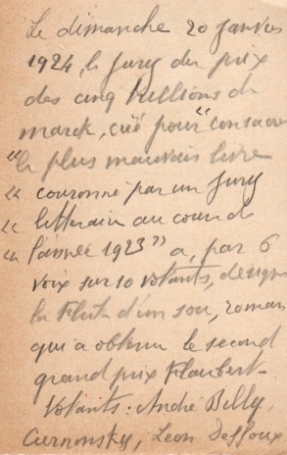 Le dimanche 20 Janvier
1924, le Jury du prix
des cinq billions de
marck, créé pour "consacrer
"le plus mauvais livre
" couronné par un Jury
" littéraire au cours de
" l'année 1923" a, par 6
voix sur 10 votants, désigné
la Flute d'un sou, roman
qui a obtenu le second
grand prix Flaubert.
Votants: André Billy,
Curnonsky, Léon Deffoux